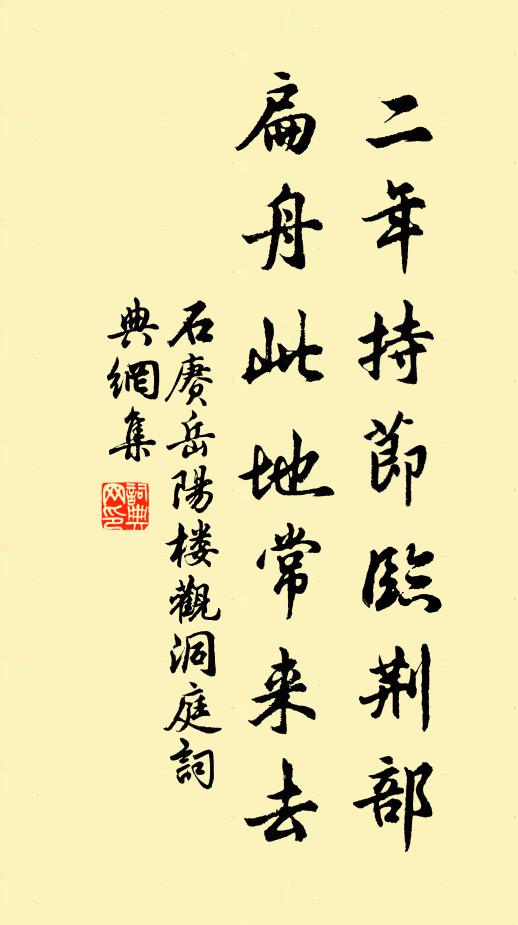 二年持節臨荆部
扁舟此地常来去
石赓岳陽楼觀洞庭詞
典網集
詞典網印